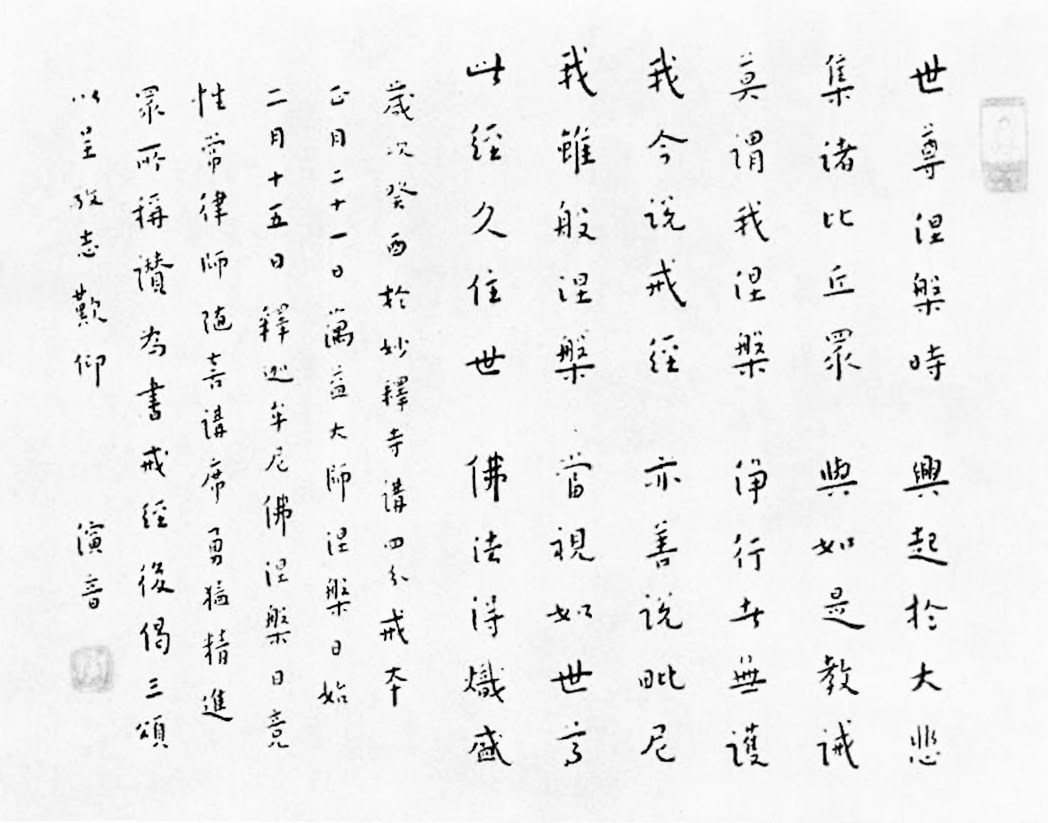 世尊涅槃時　興起於大悲
集諸比丘眾　與如是教誡
莫謂我涅槃　淨行者無護
我今說戒經　亦善說毗尼
我雖般涅槃　當視如世尊
此經久住世　佛法得熾盛
歲次癸酉於妙釋寺講四分戒本
正月二十一日蕅益大師涅槃日始
二月十五日釋迦牟尼佛涅槃日竟
性常律師隨喜講席勇猛精進
眾所稱讚為書戒經後偈三頌
以呈敬志歎仰　演音